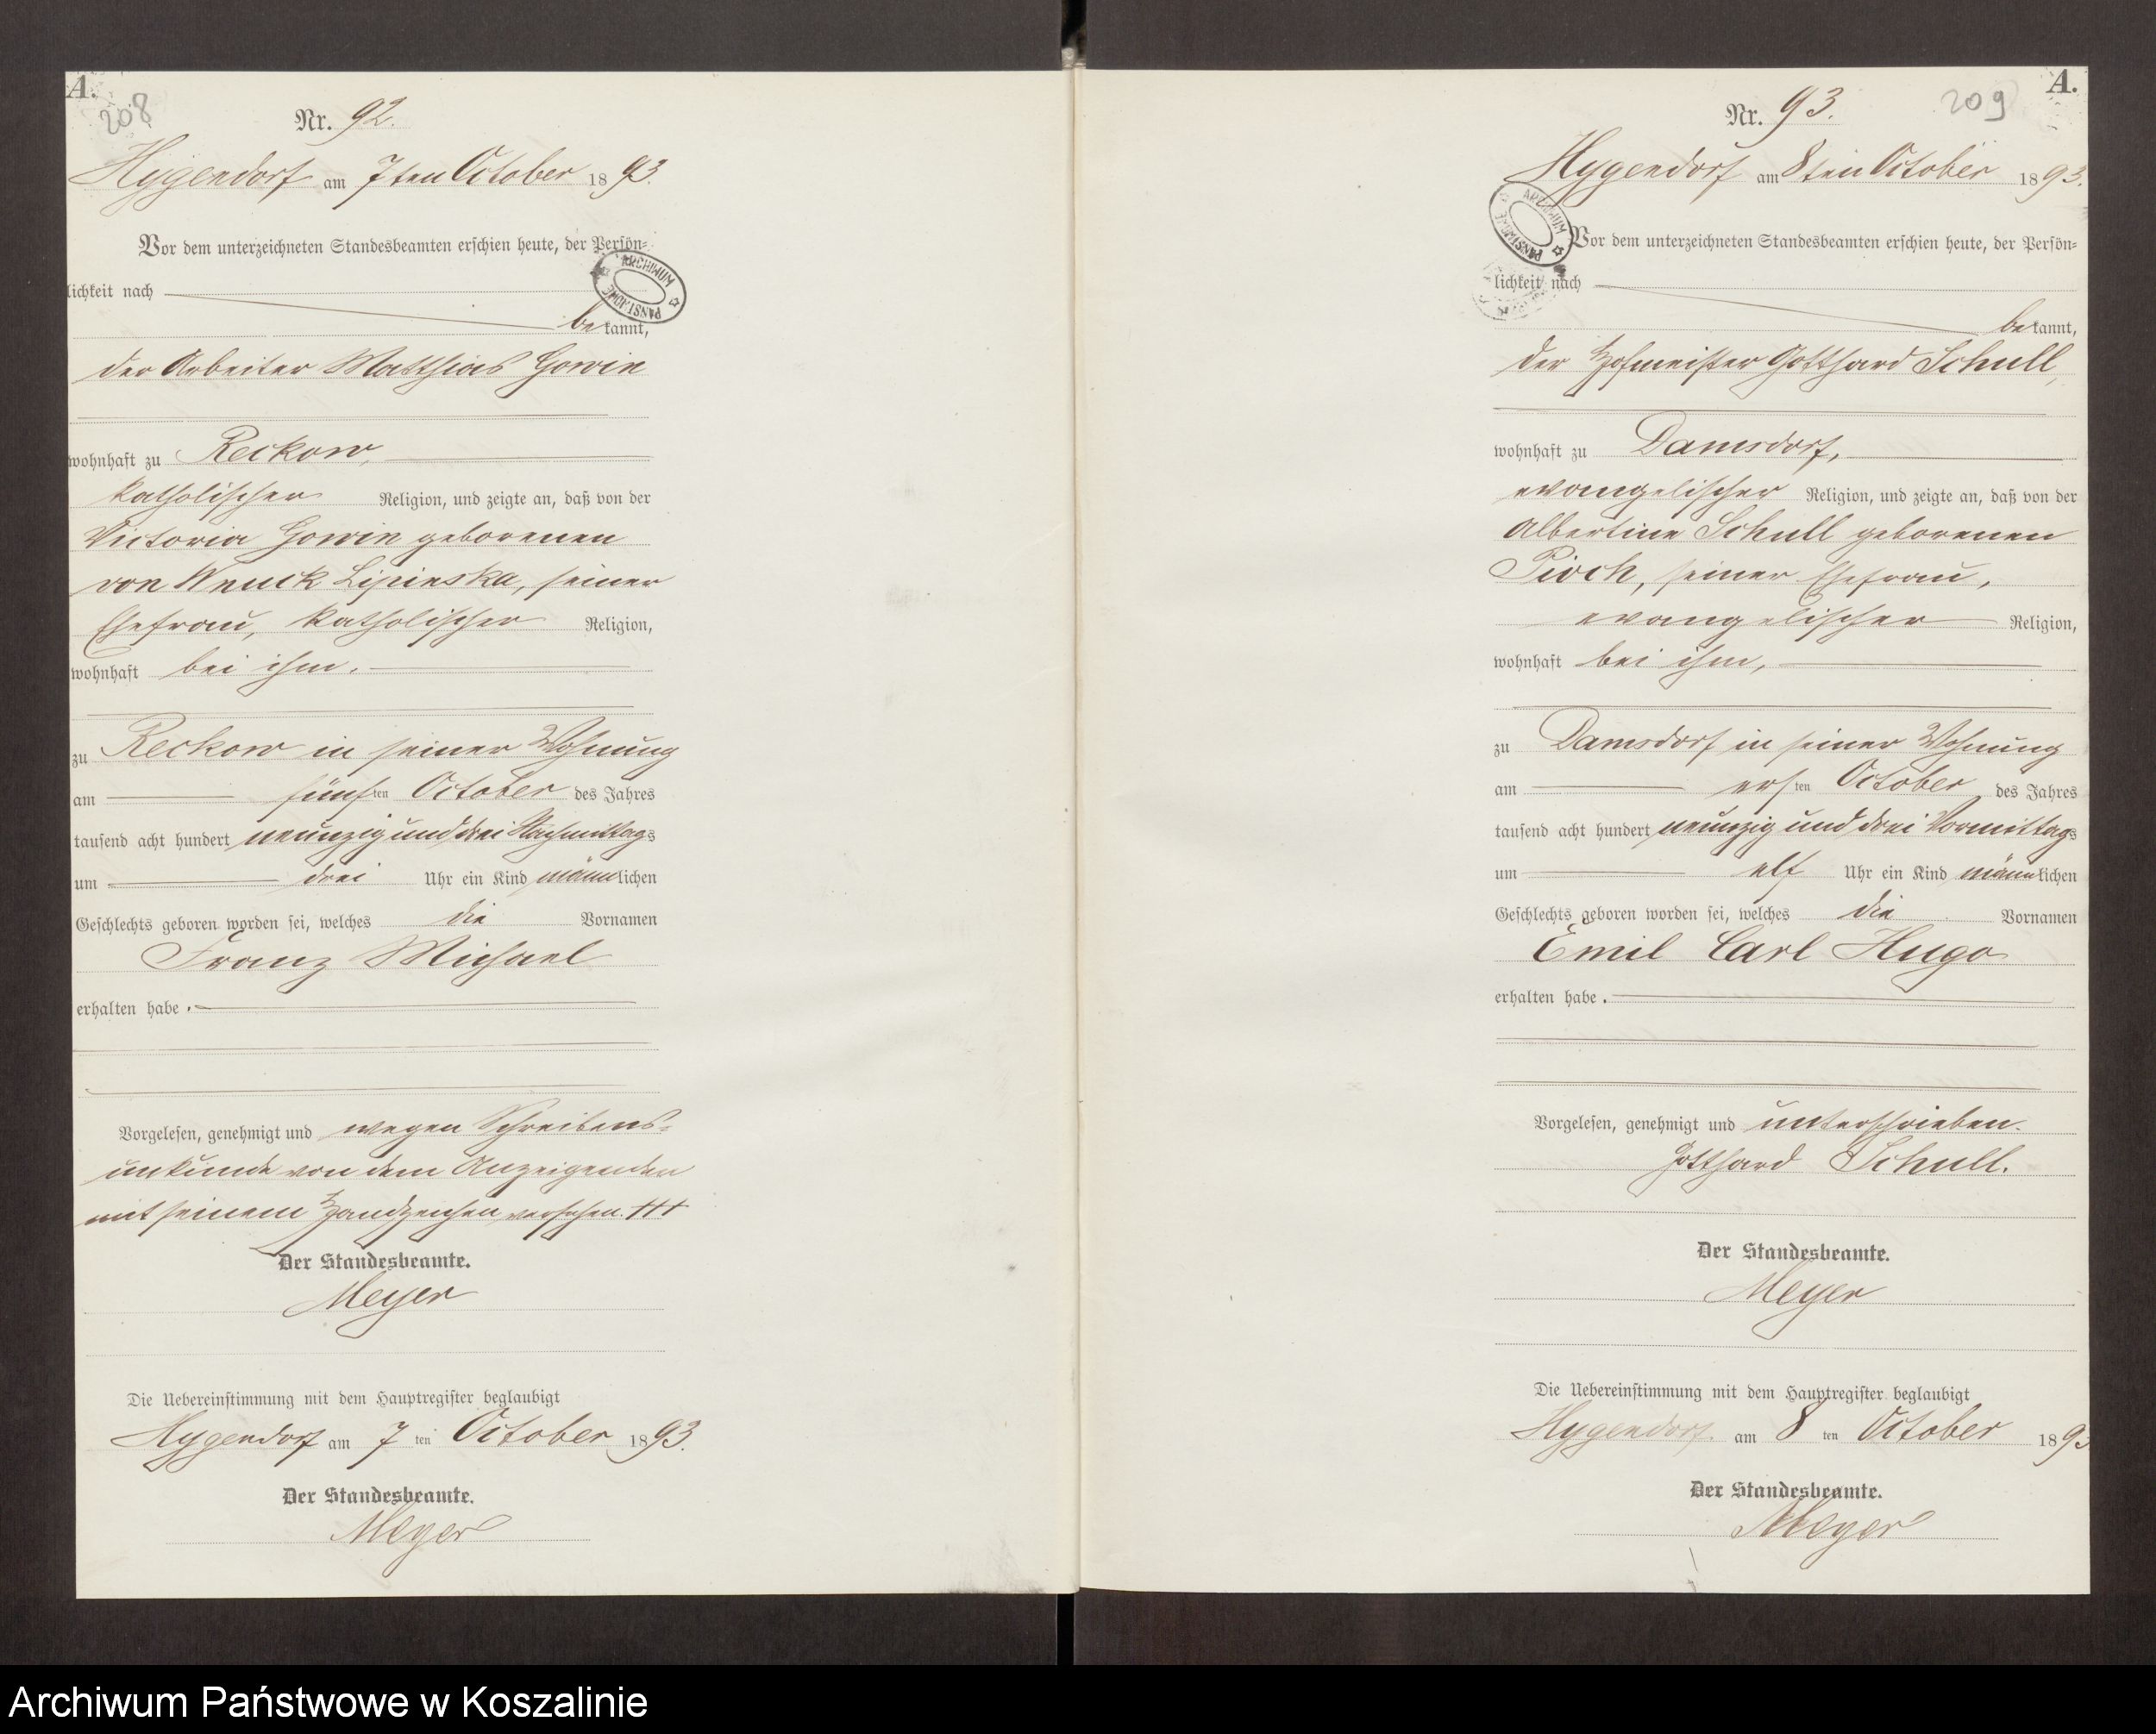 A.
208
Nr. 92.
Hygendorf am 7ten October 1893.
Vor dem unterzeichneten Standesbeamten erschien heute, der Persön=
lichkeit nach
bekannt,
der Arbeiter Matthias Gowin
wohnhaft zu Reckow,
katholischer Religion, und zeigte an, daß von der
Victoria Gowin geborenen
von Wnuck Lipinska, seiner
Ehefrau, katholischer Religion,
wohnhaft bei ihm.
zu Reckow in seiner Wohnung
am fünften October des Jahres
tausend acht hundert neunzig und drei Nachmittags
um drei Uhr ein Kind männlichen
Geschlechts geboren worden sei, welches die Vornamen
Franz Michael
erhalten habe.
Vorgelesen, genehmigt und wegen Schreibens=
unkunde von dem Anzeigenden
mit seinem Handzeichen versehen. +++
Der Standesbeamte.
Meyer
Die Uebereinstimmung mit dem Hauptregister beglaubigt
Hygendorf am 7ten October 1893.
Der Standesbeamte.
Meyer
ARCHIWUM PAŃSTWOWE
A.
209
Nr. 93.
Hygendorf am 8ten October 1893.
ARCHIWUM PAŃSTWOWE
Vor dem unterzeichneten Standesbeamten erschien heute, der Persön=
lichkeit nach
bekannt,
der Hofmeister Gotthard Schull,
wohnhaft zu Damsdorf,
evangelischer Religion, und zeigte an, daß von der
Albertine Schull geborenen
Pioch, seiner Ehefrau,
evangelischer Religion,
wohnhaft bei ihm,
zu Damsdorf in seiner Wohnung
am ersten October des Jahres
tausend acht hundert neunzig und drei Vormittags
um elf Uhr ein Kind männlichen
Geschlechts geboren worden sei, welches die Vornamen
Emil Carl Hugo
erhalten habe.
Vorgelesen, genehmigt und unterschrieben.
Gotthard Schull.
Der Standesbeamte.
Meyer
Die Uebereinstimmung mit dem Hauptregister beglaubigt
Hygendorf am 8ten October 1893
Der Standesbeamte.
Meyer
Archiwum Państwowe w Koszalinie